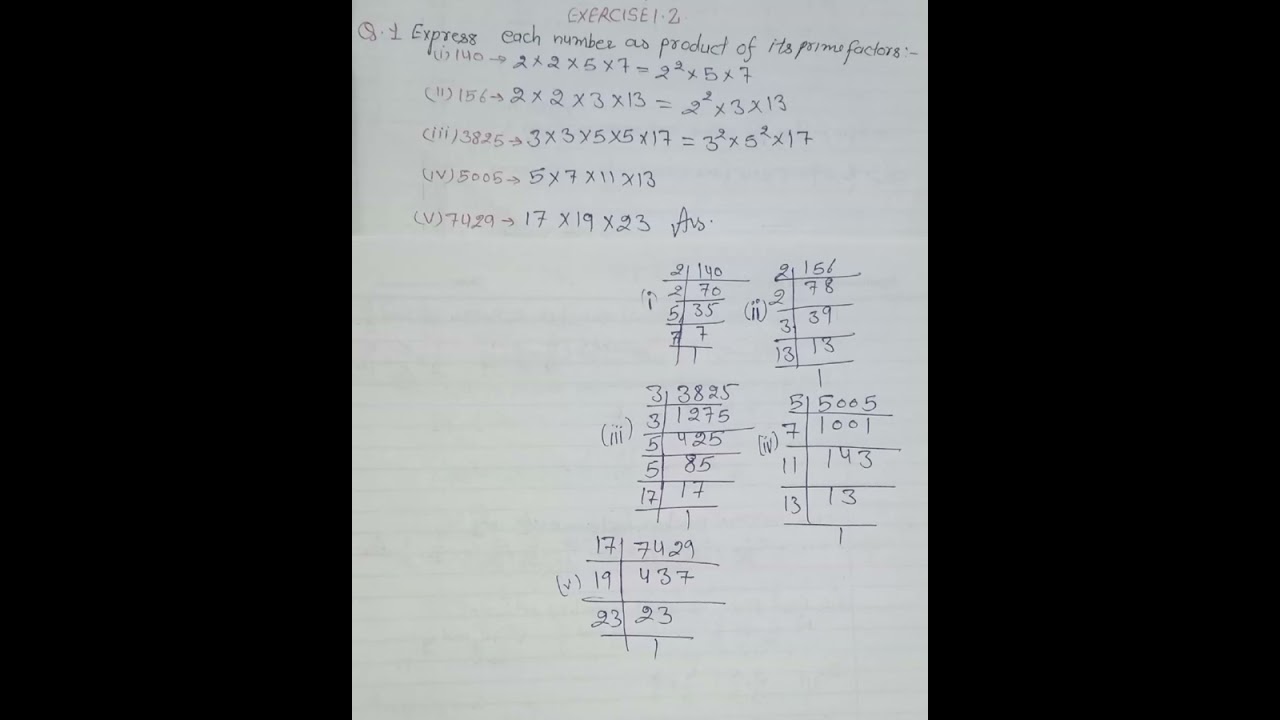 EXERCISE 1.2.
Q.1 Express each number as product of its prime factors:-
(i) 140 → 2×2×5×7 = 2²×5×7
(ii) 156 → 2×2×3×13 = 2²×3×13
(iii) 3825 → 3×3×5×5×17 = 3²×5²×17
(iv) 5005 → 5×7×11×13
(v) 7429 → 17×19×23 Ans.
2 140
2 70
(i
5 35
7 7
1
2 156
2 78
(ii)
3 39
13 13
1
3 3825
3 1275
(iii)
5 425
5 85
17 17
1
5 5005
7 1001
(iv)
11 143
13 13
1
17 7429
(v) 19 437
23 23
1